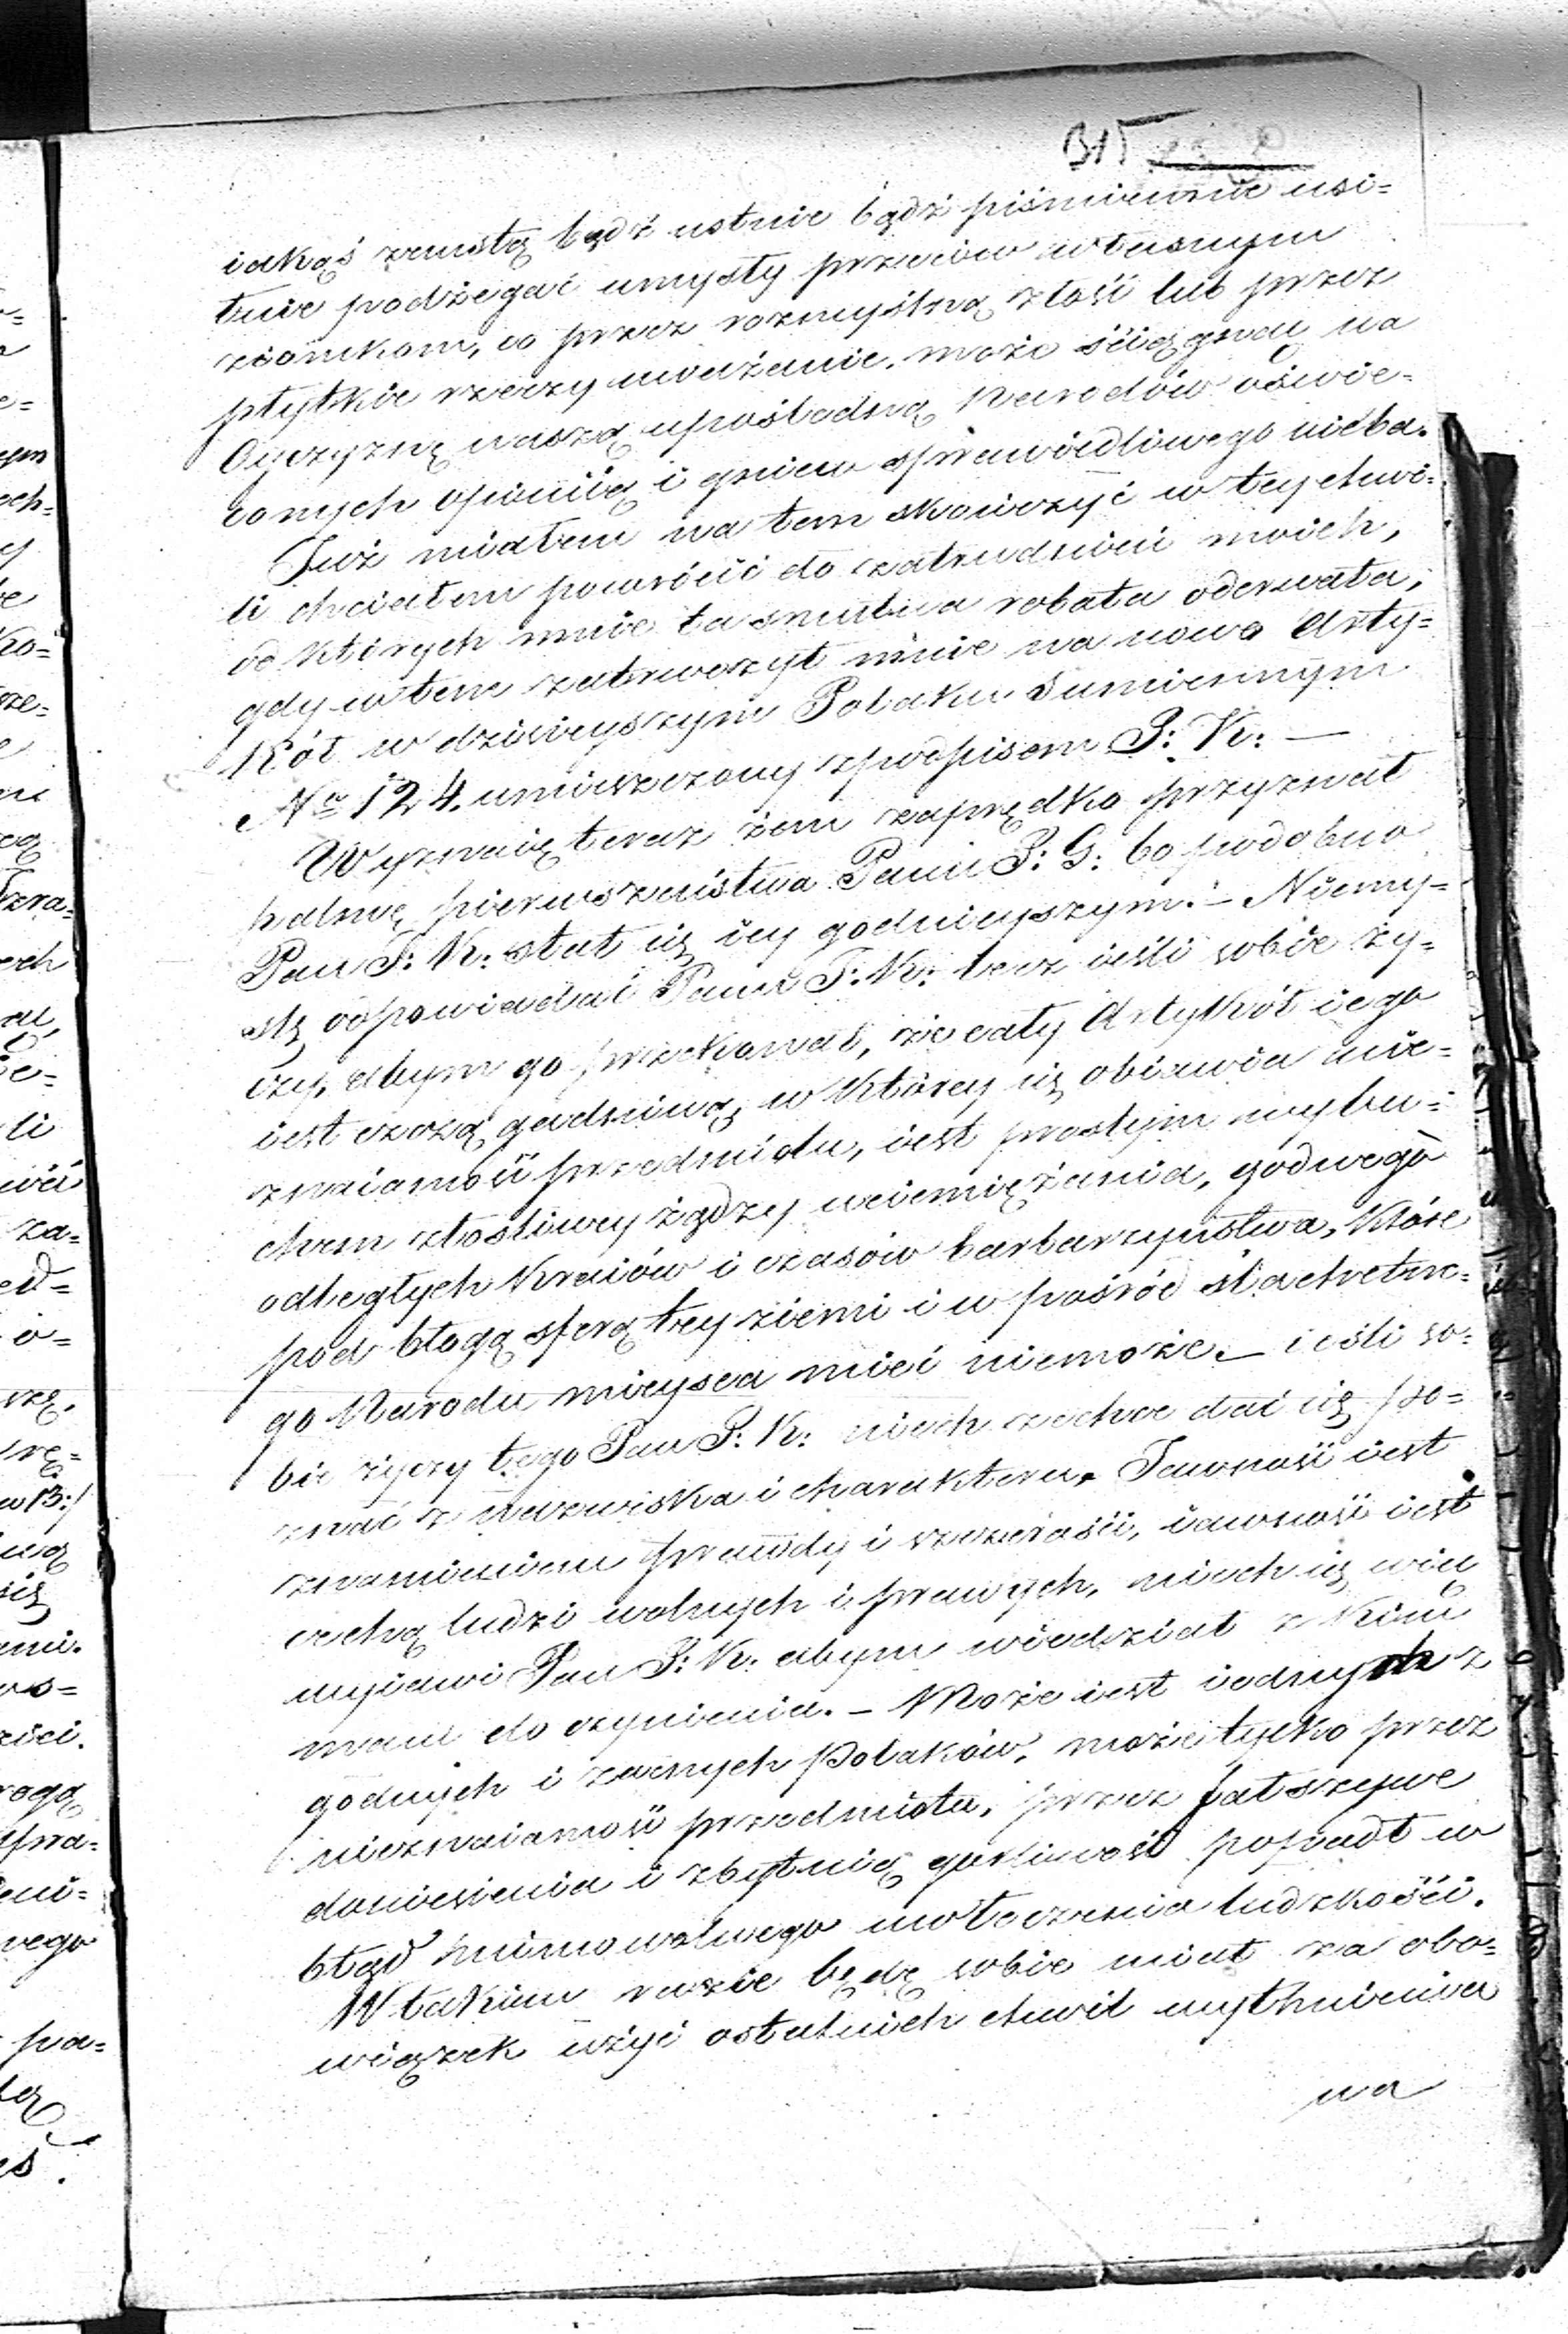 315
iakąś zemstą bądź ustnie bądź piśmiennie usi=
łuie podżegać umysły przeciw własnym
ziomkom, co przez rozmyślną złość lub przez
płytkie rzeczy uważanie, może ściągnąć na
Oyczyznę naszą upośladną Narodów oświe=
conych opiniią i gniew sprawiedliwego nieba.
Już miałem na tem skończyć w tey chwi=
li chciałem powrócić do zatrudnień moich,
od których mnie ta smutna robota oderwała,
gdy wtem zatrwożył mnie na nowo Arty=
kół w dzisieyszym Polaku Sumiennym
No 124. umieszczony z podpisem J: K: —
Wyznaię teraz żem zaprędko przyznał
palmę pierwszeństwa Panu J: G: bo podobno
Pan J: K: stał się iey godnieyszym. – Niemy=
slę odpowiadać Panu J: K: lecz ieśli sobie ży=
czy, abym go przekonał, że cały Artykół iego
iest czczą gadaniną, w którey się obiawia nie=
znaiamość przedmiotu, iest prostym wybu=
chem złośliwey żądzy uciemiężania, godnego
odległych Kraiów i czasów barbarzyństwa, które
pod błogą sferą tey ziemi i w pośród slachetne=
go Narodu mieysca mieć niemoże. – ieśli so=
bie życzy tego Pan J: K: niech zechce dać się po=
znać z nazwiska i charakteru. Jawność iest
znamieniem prawdy i szczerości, iawność iest
cechą ludzi wolnych i prawych, niech się więc
wyiawi Pan J: K: abym wiedział z kim
mam do czynienia. – Może iest iednym z
godnych i zacnych Polaków, może tylko przez
nieznaiamość przedmiotu, przez fałszywe
doniesienia i zbytnią gorliwość popadł w
błąd mimowolnego uwłóczenia ludzkości.
W takim razie będę sobie miał za obo=
wiązek użyć ostatnich chwil wythnienia
na